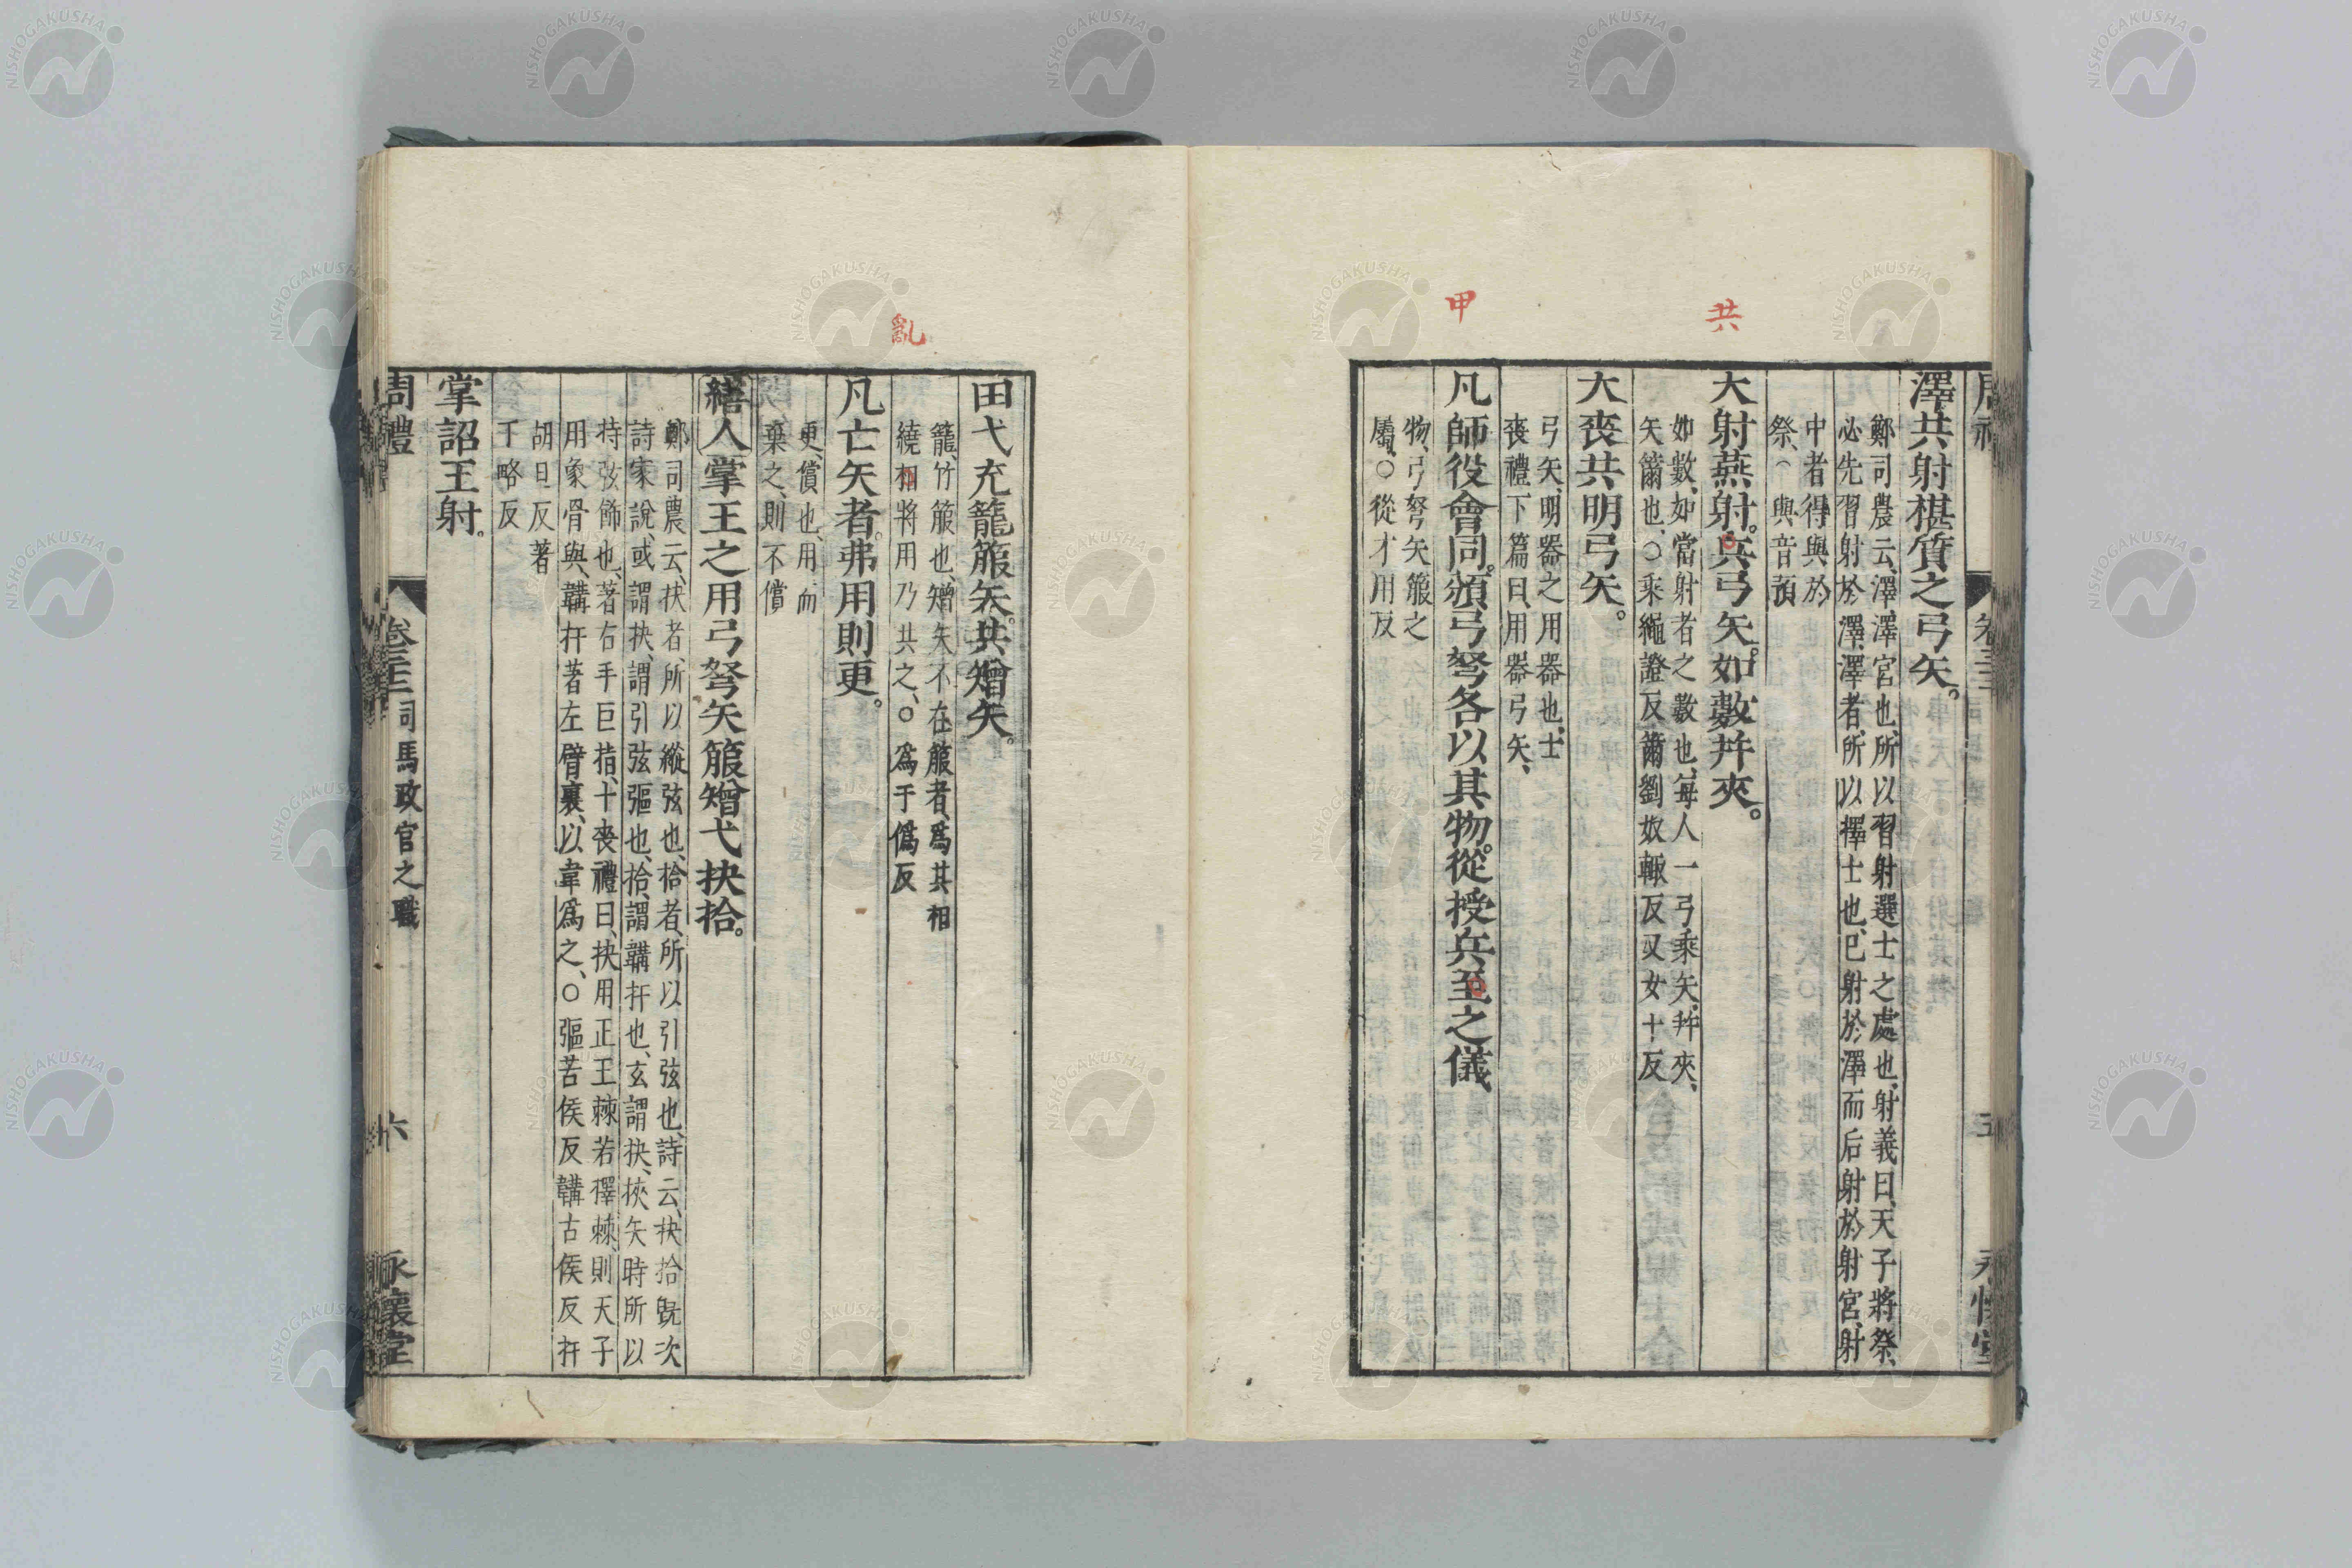 共
甲
澤共射椹質之弓矢。
鄭司農云、澤、澤宮也、所以習射選士之處也、射義曰、天子將祭、
必先習射於澤、澤者、所以擇士也、已射於澤而后射於射宮、射
中者得與於
祭、○與音預
大射燕射。兵弓矢。如數并夾。
如數、如當射者之數也、每人一弓乘矢、并夾、
矢籋也、○乘繩證反籋劉奴輒反又女十反
大喪共明弓矢。
弓矢、明器之用器也、士
喪禮下篇曰、用器弓矢、
凡師役會同。頒弓弩各以其物。從授兵至之儀、
物、弓弩矢箙之
屬、○從才用反
五
亂
田弋充籠箙矢。共矰矢。
籠、竹箙也、矰矢不在箙者、爲其相
繞相將用乃共之、○爲于僞反
凡亡矢者。弗用則更。
更、償也、用而
棄之、則不償
繕人掌王之用弓弩矢箙矰弋抉拾。
鄭司農云、抉者、所以縱弦也、拾者、所以引弦也、詩云、抉拾旣次
詩家說、或謂抉、謂引弦彄也、拾、謂韝扞也、玄謂抉、挾矢時所以
持弦飾也、著右手巨指、士喪禮曰、抉用正王棘若檡棘、則天子
用象骨與、韝扞著左臂裏、以韋爲之、○彄苦侯反韝古侯反扞
胡旦反著
丁略反
掌詔王射。
周禮 卷三十二 司馬政官之職 六 永懷堂
NISHOGAKUSHA